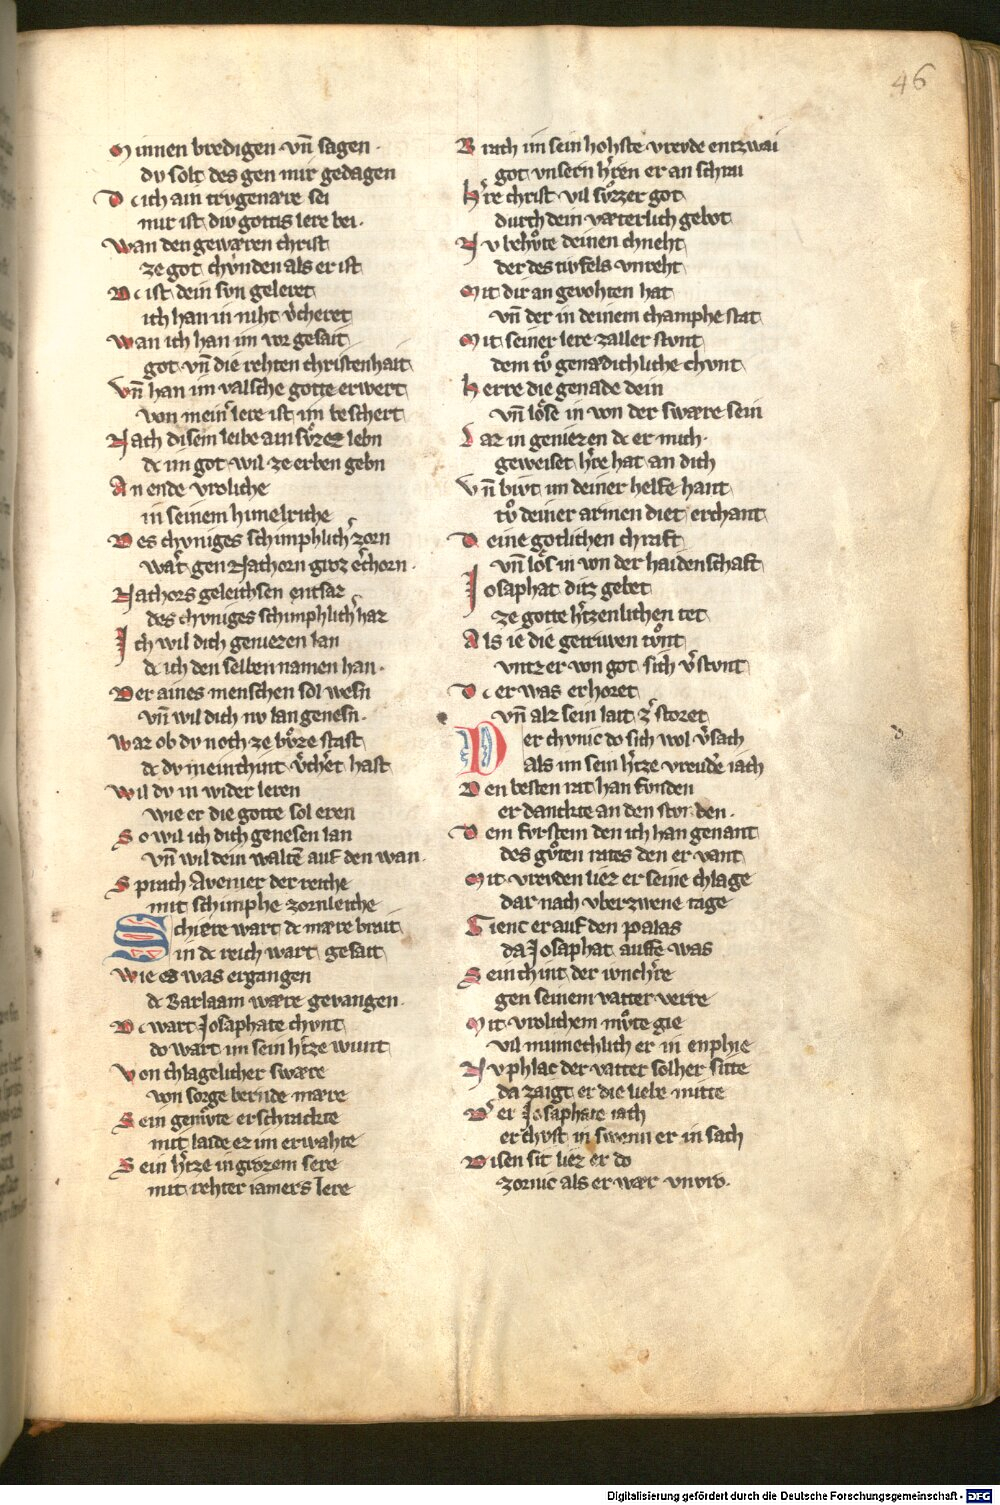 46
Minnen bredigen vn̄ sagen ·
dv solt des gen mir gedagen
Dc ich ain trvgenære sei
mir ist div gottis lere bei ·
Wan den gewæren christ
ze got chvnden als er ist
Dc ist dein svn geleret
ich han in niht v̉cheret
Wan ich han im vor gesait
got vn̄ die rehten christenhait
Vn̄ han im valsche gotte erwert
von mein̉ lere ist im beschert
Nach disem leibe ain svͦzez lebn
dc im got wil ze erben gebn
An ende vroliche
in seinem himelriche
Des chvniges schimphlich̉ zorn
war̉ gen Nachorn groz erchorn ·
Nachors geleichsen entsar
des chvniges schimphlich̉ har
Ich wil dich geniezen lan
dc ich den selben namen han ·
Der aines menschen sol wesn̄
vn̄ wil dich nv lan genesn̄ ·
War ob dv noch ze bvͦze stast
dc dv mein chint v̉chert hast
Wil dv in wider leren
wie er die gotte sol eren
So wil ich dich genesen lan
vn̄ wil dein waltē auf den wan ·
Sprach Avenier der reiche
mit schimphe zornleiche
Schiere wart dc mære brait
in dc reich wart gesait
Wie es was ergangen
dc Barlaam wære gevangen ·
Dc wart Josaphate chvnt
do wart im sein h̉tze wunt
Von chlagelicher swære
von sorge bernde mære
Sein gemvͦte erschrachte
mit laide ez im erwahte
Sein h̉tze in grozem sere
mit rehter iamers lere
Brach im sein hohste vrevde entzwai
got vnsern h̉ren er an schrai
H̉re christ vil svͦzzer got
durch dein væterlich gebot
Nv behvͦte deinen chneht
der des tivfels vnreht
Mit dir an gevohten hat
vn̄ der in deinem champhe stat
Mit seiner lere zaller stvnt
dem tvͦ genadichliche chvnt
Herre die genade dein
vn̄ lose in von der swære sein
Laz in geniezen dc er mich ·
geweiset h̉re hat an dich
Vn̄ bivt im deiner helfe hant
tvͦ deiner armen diet erchant
Deine gotlichen chraft
vn̄ los in von der haidenschaft
Josaphat ditz gebet
ze gotte h̉tzenlichen tet
Als ie die getriwen tvͦnt
vntz er von got sich v̉stvnt
Dc er was erhoret
vn̄ alz sein lait z̉storet
Der chvnic do sich wol v̉sach
als im sein h̉tze vreude iach
Den besten rat han fvnden
er danchte an den stvnden ·
Dem fvrstem den ich han genant
des gvͦten rates den er vant
Mit vrevden liez er seine chlage
dar nach vber zwene tage
Gienc er auf den palas
da Josaphat auffe was
Sein chint der wnch̉re
gen seinem vatter verre
Mit vrolichem mvͦte gie
vil minnechlich er in enphie
Nv phlac der vatter solher sitte
da zaigt er die liebe mitte
Dc er Josaphate iach
er chvst in swenn er in sach
Disen sit liez er do
zornic als er wær vnvro ·
Digitalisierung gefördert durch die Deutsche Forschungsgemeinschaft - DFG